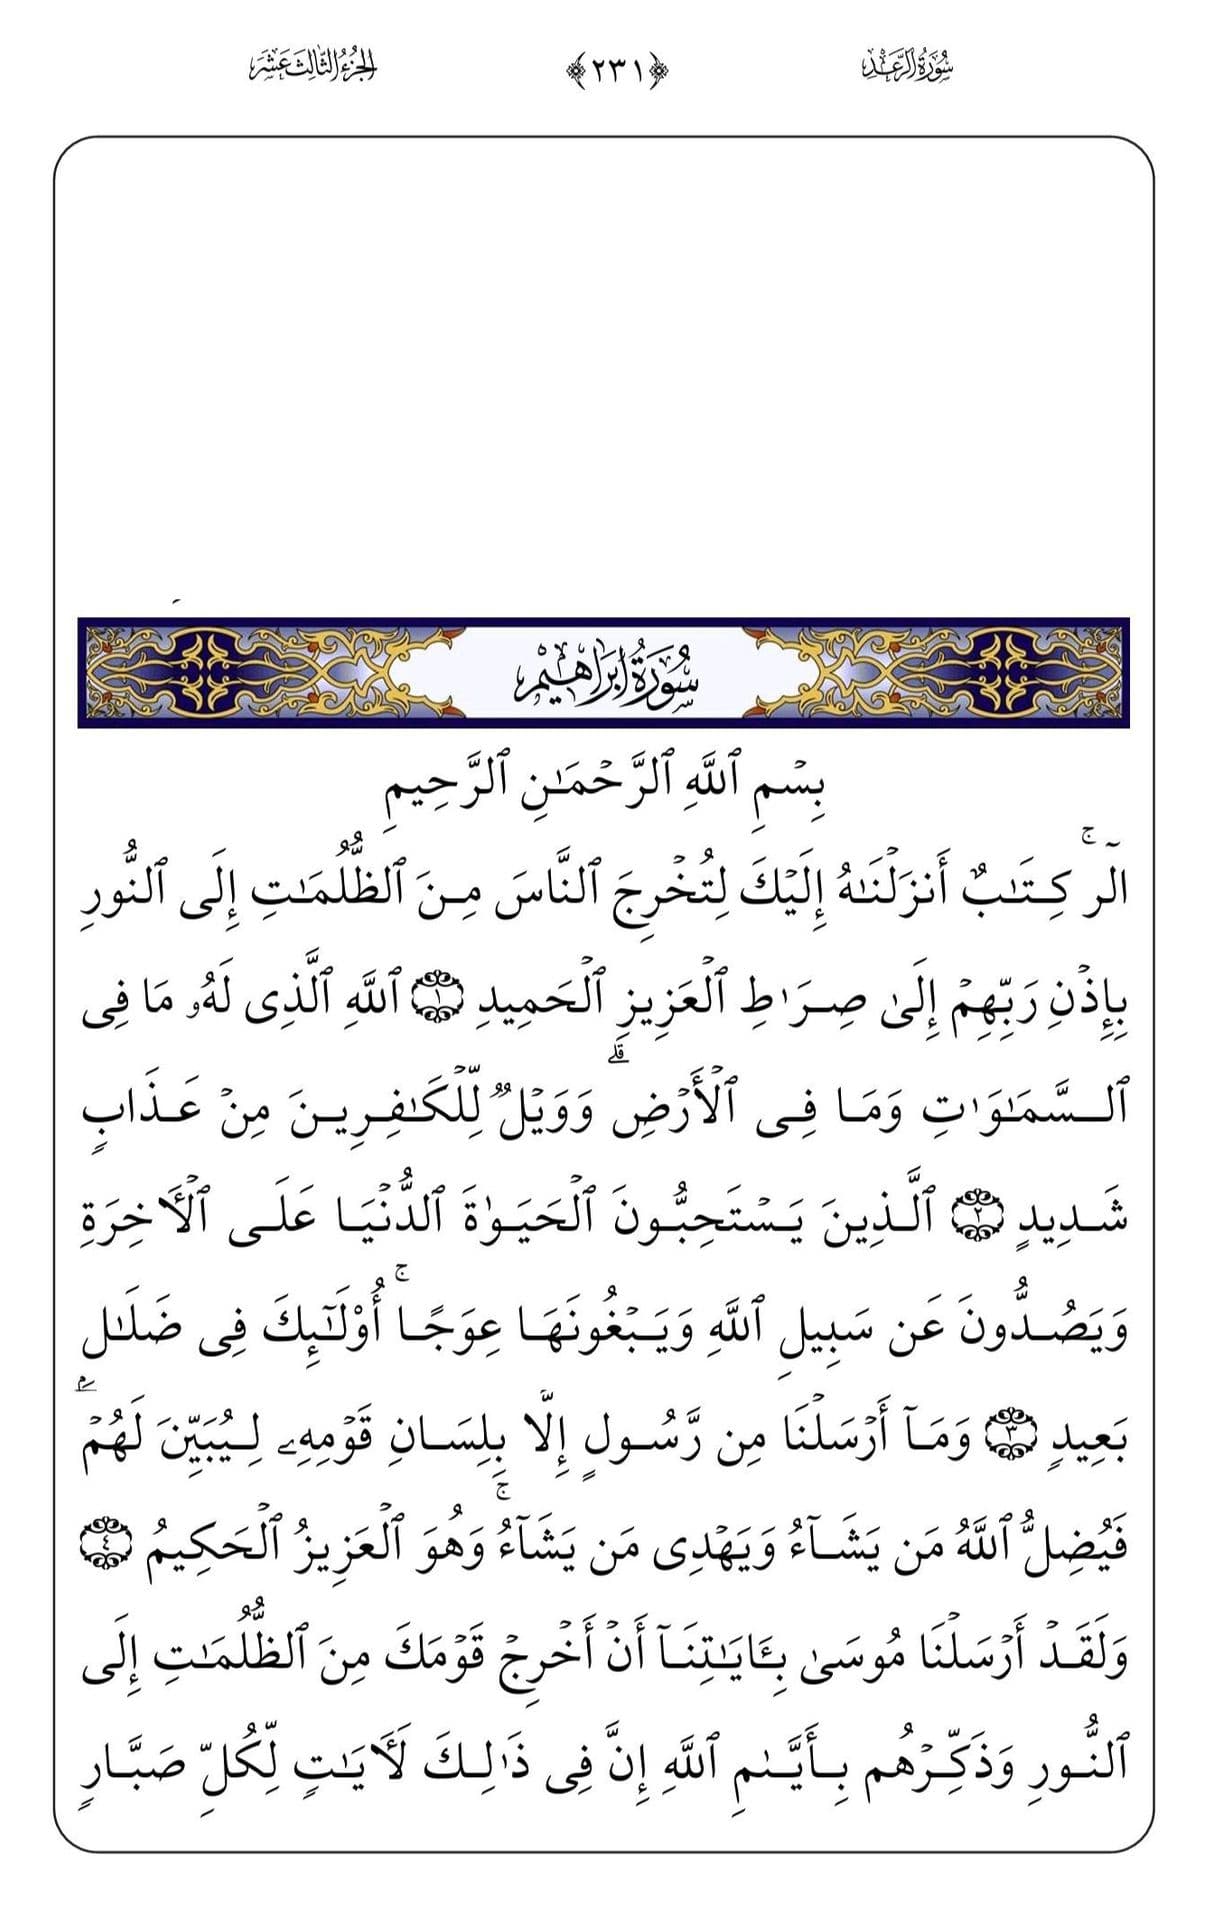 سُورَةُ الرَّعْدِ ﴿٢٣١﴾ الجُزْءُ الثَّالِثَ عَشَرَ
سُورَةُ إِبْرَاهِيم
بِسۡمِ ٱللَّهِ ٱلرَّحۡمَـٰنِ ٱلرَّحِيمِ
الٓرۚ كِتَـٰبٌ أَنزَلۡنَـٰهُ إِلَيۡكَ لِتُخۡرِجَ ٱلنَّاسَ مِنَ ٱلظُّلُمَـٰتِ إِلَى ٱلنُّورِ
بِإِذۡنِ رَبِّهِمۡ إِلَىٰ صِرَٰطِ ٱلۡعَزِيزِ ٱلۡحَمِيدِ ١ ٱللَّهِ ٱلَّذِى لَهُۥ مَا فِى
ٱلسَّمَـٰوَٰتِ وَمَا فِى ٱلۡأَرۡضِۗ وَوَيۡلٌ لِّلۡكَـٰفِرِينَ مِنۡ عَذَابٍ
شَدِيدٍ ٢ ٱلَّذِينَ يَسۡتَحِبُّونَ ٱلۡحَيَوٰةَ ٱلدُّنۡيَا عَلَى ٱلۡأَخِرَةِ
وَيَصُدُّونَ عَن سَبِيلِ ٱللَّهِ وَيَبۡغُونَهَا عِوَجًاۚ أُوْلَـٰٓئِكَ فِى ضَلَـٰلٍ
بَعِيدٍ ٣ وَمَآ أَرۡسَلۡنَا مِن رَّسُولٍ إِلَّا بِلِسَانِ قَوۡمِهِۦ لِيُبَيِّنَ لَهُمۡۖ
فَيُضِلُّ ٱللَّهُ مَن يَشَآءُ وَيَهۡدِى مَن يَشَآءُۚ وَهُوَ ٱلۡعَزِيزُ ٱلۡحَكِيمُ ٤
وَلَقَدۡ أَرۡسَلۡنَا مُوسَىٰ بِـَٔايَـٰتِنَآ أَنۡ أَخۡرِجۡ قَوۡمَكَ مِنَ ٱلظُّلُمَـٰتِ إِلَى
ٱلنُّورِ وَذَكِّرۡهُم بِأَيَّـٰمِ ٱللَّهِ إِنَّ فِى ذَٰلِكَ لَأَيَـٰتٍ لِّكُلِّ صَبَّارٍ